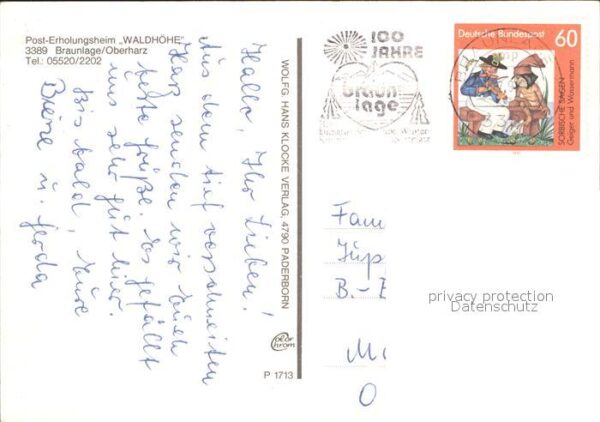 Post-Erholungsheim „WALDHÖHE"
3389 Braunlage/Oberharz
Tel.: 05520/2202
Hallo, Ihr Lieben!
Aus dem tief verschneiten
Harz senden wir Euch
liebe Grüße. Es gefällt
uns sehr gut hier.
Bis bald, Eure
u. Gerda
WOLFG. HANS KLOCKE VERLAG, 4790 PADERBORN
color
chrom
P 1713
100
JAHRE
Braun
lage
Deutsche Bundespost
60
SORBISCHE SAGEN
Geiger und Wassermann
Fam
B.-
O
privacy protection
Datenschutz